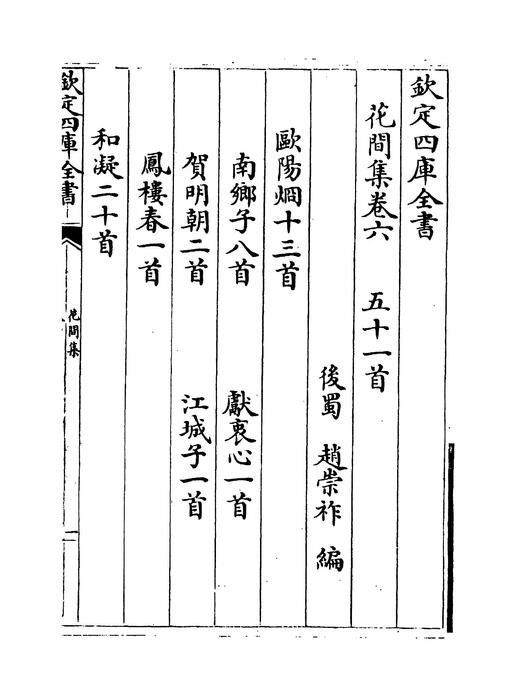 欽定四庫全書
花間集卷六　五十一首
後蜀　趙崇祚　編
歐陽烱十三首
南鄉子八首　獻衷心一首
賀明朝二首　江城子一首
鳳樓春一首
和凝二十首
欽定四庫全書
花間集